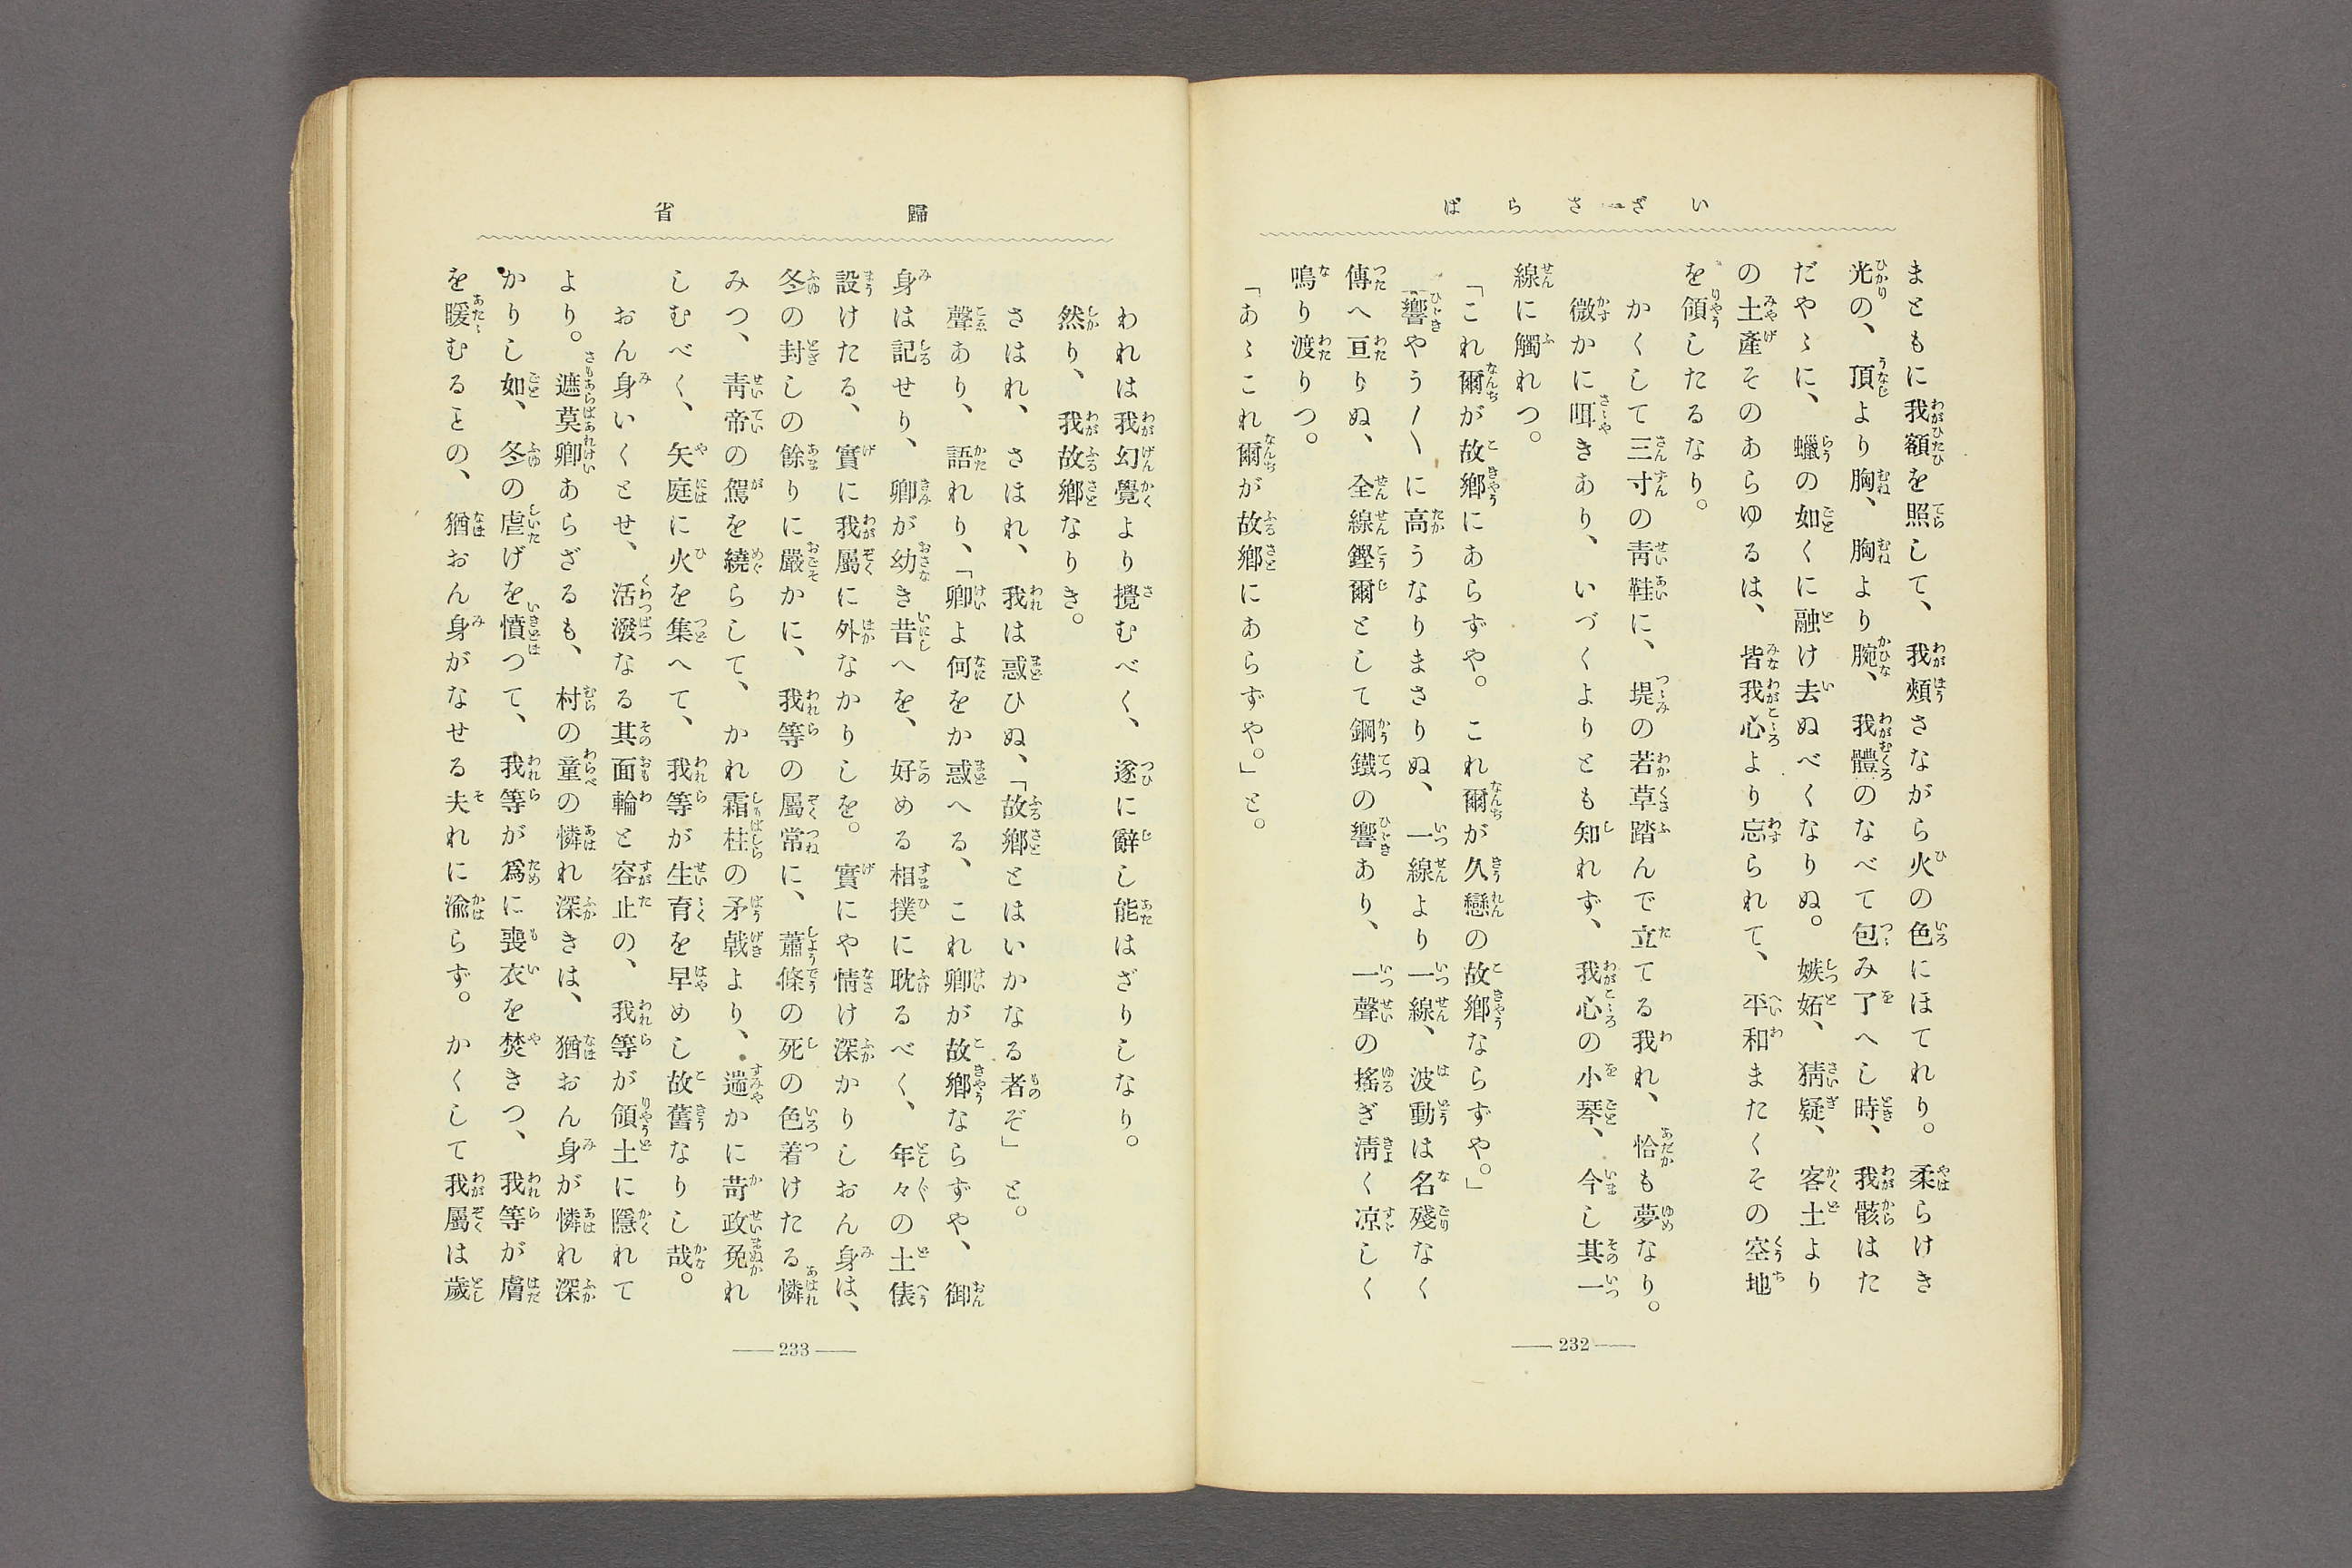 いざさらば
まともに我額を照して、我頬さながら火の色にほてれり。柔らけき
光の、頂より胸、胸より腕、我體のなべて包み了へし時、我骸はた
だやゝに、蠟の如くに融け去ぬべくなりぬ。嫉妬、猜疑、客土より
の土產そのあらゆるは、皆我心より忘られて、平和またくその空地
を領したるなり。
かくして三寸の靑鞋に、堤の若草踏んで立てる我れ、恰も夢なり。
微かに咡きあり、いづくよりとも知れず、我心の小琴、今し其一
線に觸れつ。
「これ爾が故鄕にあらずや。これ爾が久戀の故鄕ならずや。」
響やう〳〵に高うなりまさりぬ、一線より一線、波動は名殘なく
傳へ亘りぬ、全線鏗爾として鋼鐵の響あり、一聲の搖ぎ淸く凉しく
鳴り渡りつ。
「あゝこれ爾が故鄕にあらずや。」と。
232
歸省
われは我幻覺より攪むべく、遂に辭し能はざりしなり。
然り、我故鄕なりき。
さはれ、さはれ、我は惑ひぬ、「故鄕とはいかなる者ぞ」と。
聲あり、語れり、「卿よ何をか惑へる、これ卿が故鄕ならずや、御
身は記せり、卿が幼き昔へを、好める相撲に耽るべく、年々の土俵
設けたる、實に我屬に外なかりしを。實にや情け深かりしおん身は、
冬の封しの餘りに嚴かに、我等の屬常に、蕭條の死の色着けたる憐
みつ、靑帝の駕を繞らして、かれ霜柱の矛戟より、遄かに苛政免れ
しむべく、矢庭に火を集へて、我等が生育を早めし故舊なりし哉。
おん身いくとせ、活潑なる其面輪と容止の、我等が領土に隱れて
より。遮莫卿あらざるも、村の童の憐れ深きは、猶おん身が憐れ深
かりし如、冬の虐げを憤つて、我等が爲に喪衣を焚きつ、我等が膚
を暖むるとの、猶おん身がなせる夫れに渝らず。かくして我屬は歲
233